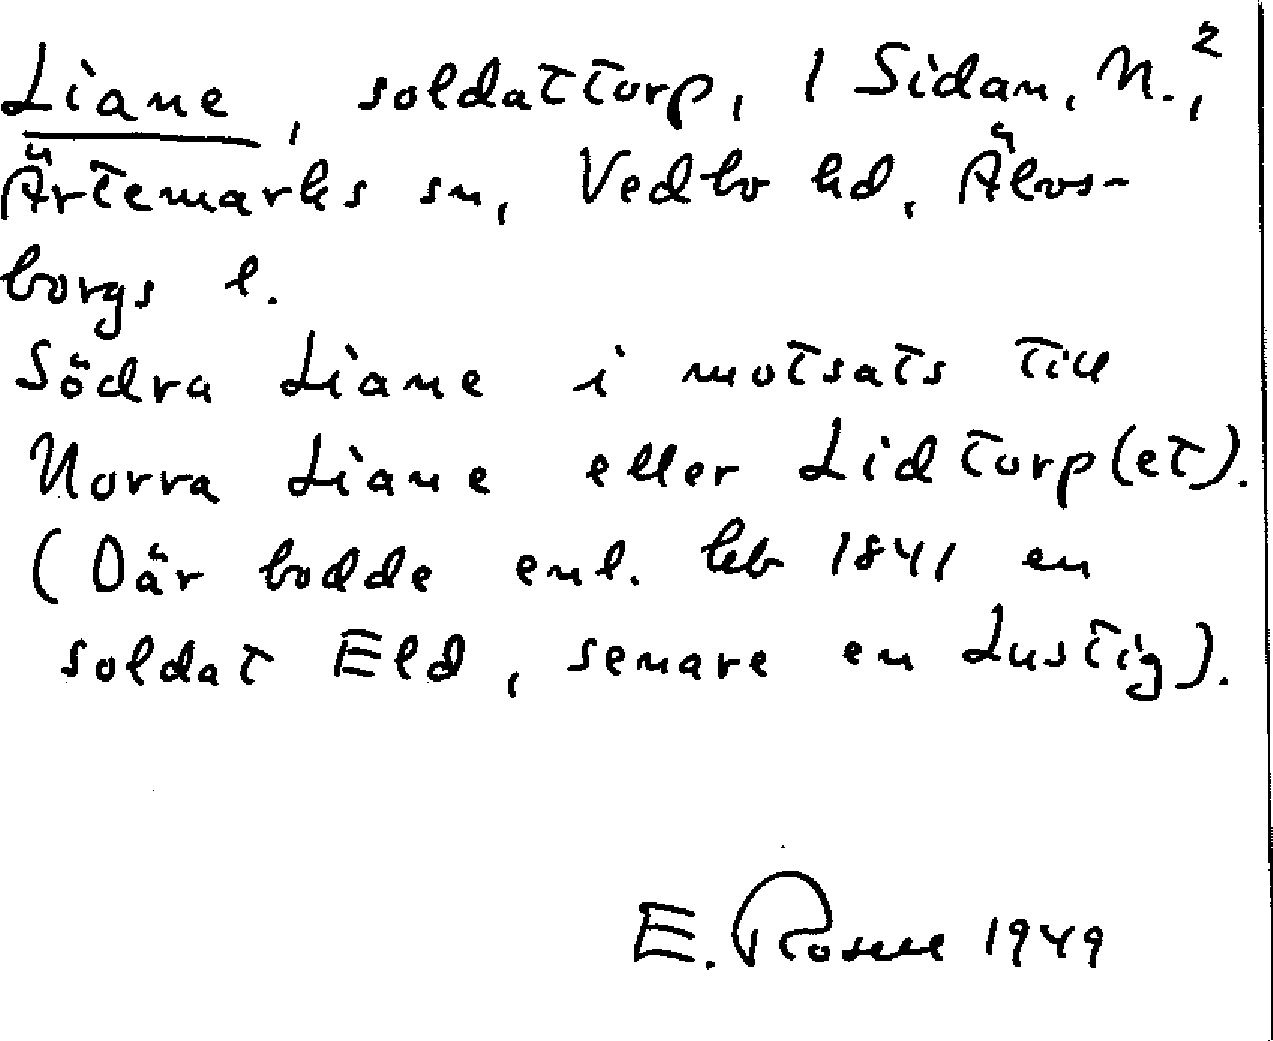 Liane, soldattorp, / Sidan, N.,²
Ärtemarks sn, Vedbo hd, Älvs-
borgs l.
Södra Liane i motsats till
Norra Liane eller Lidtorp(et).
(Där bodde enl. hfb 1841 en
soldat Eld, senare en Lustig).
E. Rosell 1949